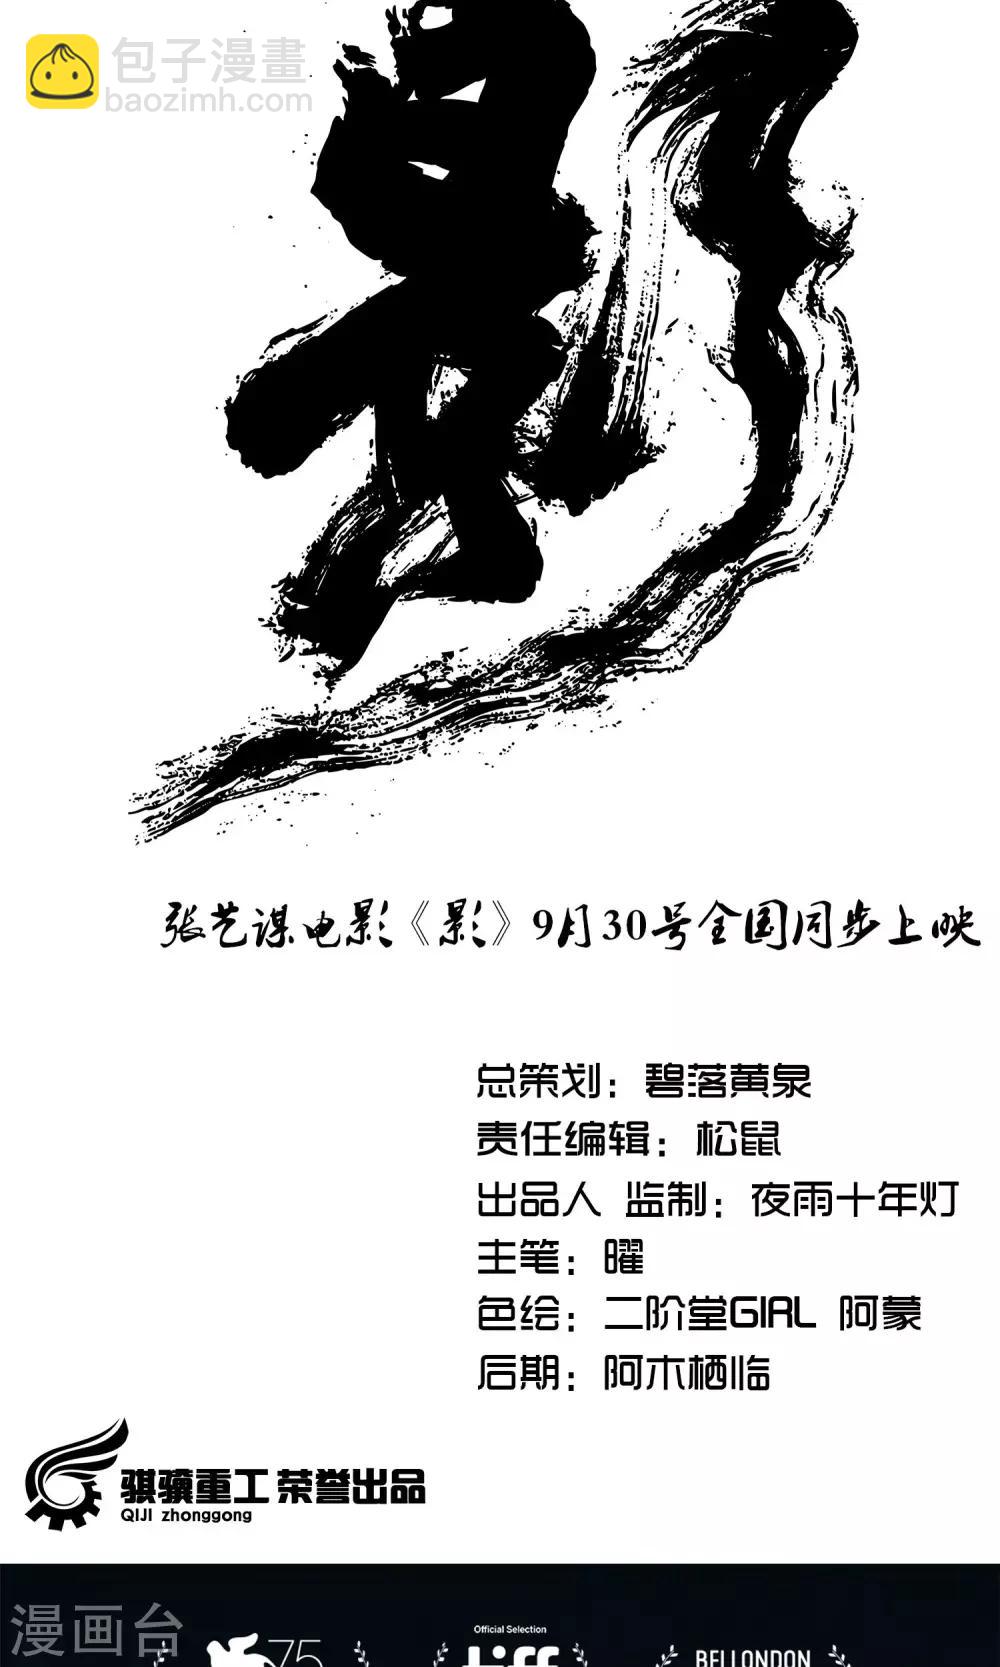 包子漫畫
baozimh.com
影
张艺谋电影《影》9月30号全国同步上映
总策划：碧落黄泉
责任编辑：松鼠
出品人 监制：夜雨十年灯
主笔：曜
色绘：二阶堂GIRL 阿蒙
后期：阿木栖临
骐骥重工 荣誉出品
QIJI zhonggong
漫画台
75
Official Selection
tiff
BFI LONDON